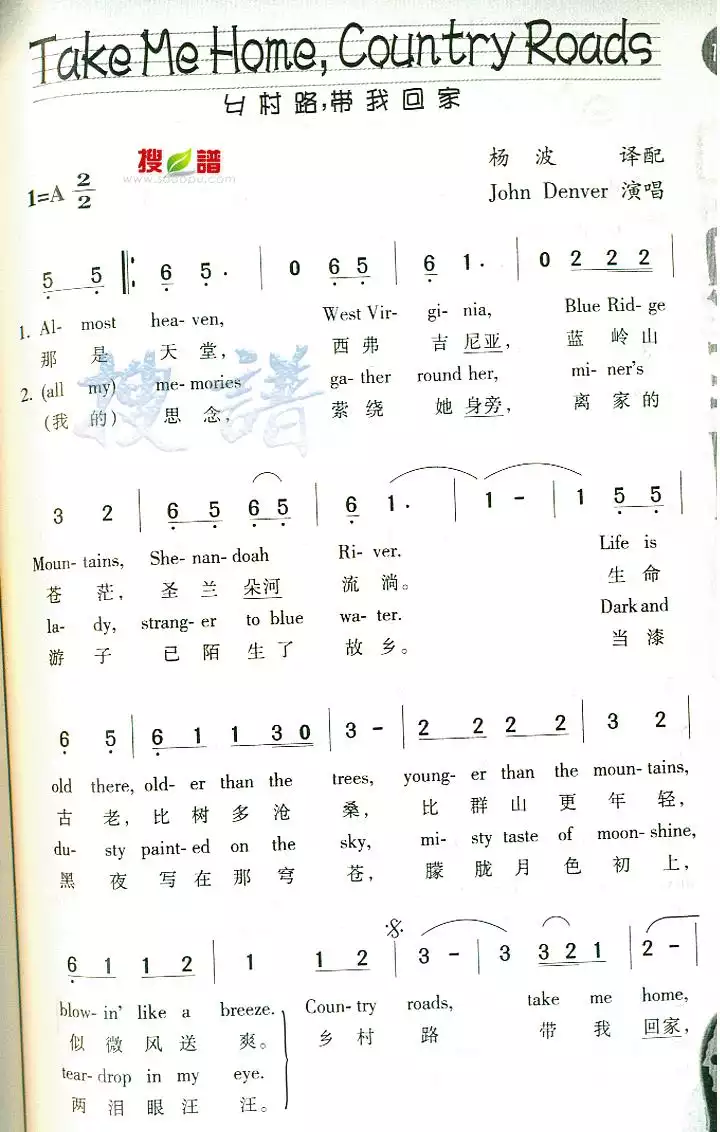 Take Me Home, Country Roads
乡村路,带我回家
搜谱
www.sooopu.com
杨 波 译配
1=A 2/2
John Denver 演唱
5 5 6 5. 0 6 5 6 1. 0 2 2 2
1. Al- most hea- ven, West Vir- gi- nia, Blue Rid- ge
那 是 天 堂, 西 弗 吉 尼亚, 蓝 岭 山
2. (all my) me- mories ga- ther round her, mi- ner's
(我 的) 思 念, 萦 绕 她 身旁, 离 家 的
搜谱
3 2 6 5 6 5 6 1. 1 - 1 5 5
Moun- tains, She- nan- doah Ri- ver. Life is
苍 茫, 圣 兰 朵河 流 淌。 生 命
la- dy, strang- er to blue wa- ter. Dark and
游 子 已 陌 生 了 故 乡。 当 漆
6 5 6 1 1 3 0 3 - 2 2 2 2 3 2
old there, old- er than the trees, young- er than the moun- tains,
古 老, 比 树 多 沧 桑, 比 群 山 更 年 轻,
du- sty paint- ed on the sky, mi- sty taste of moon- shine,
黑 夜 写 在 那 穹 苍, 朦 胧 月 色 初 上,
6 1 1 2 1 1 2 3 - 3 3 2 1 2 -
blow- in' like a breeze. Coun- try roads, take me home,
似 微 风 送 爽。 乡 村 路 带 我 回家,
tear- drop in my eye.
两 泪 眼 汪 汪。